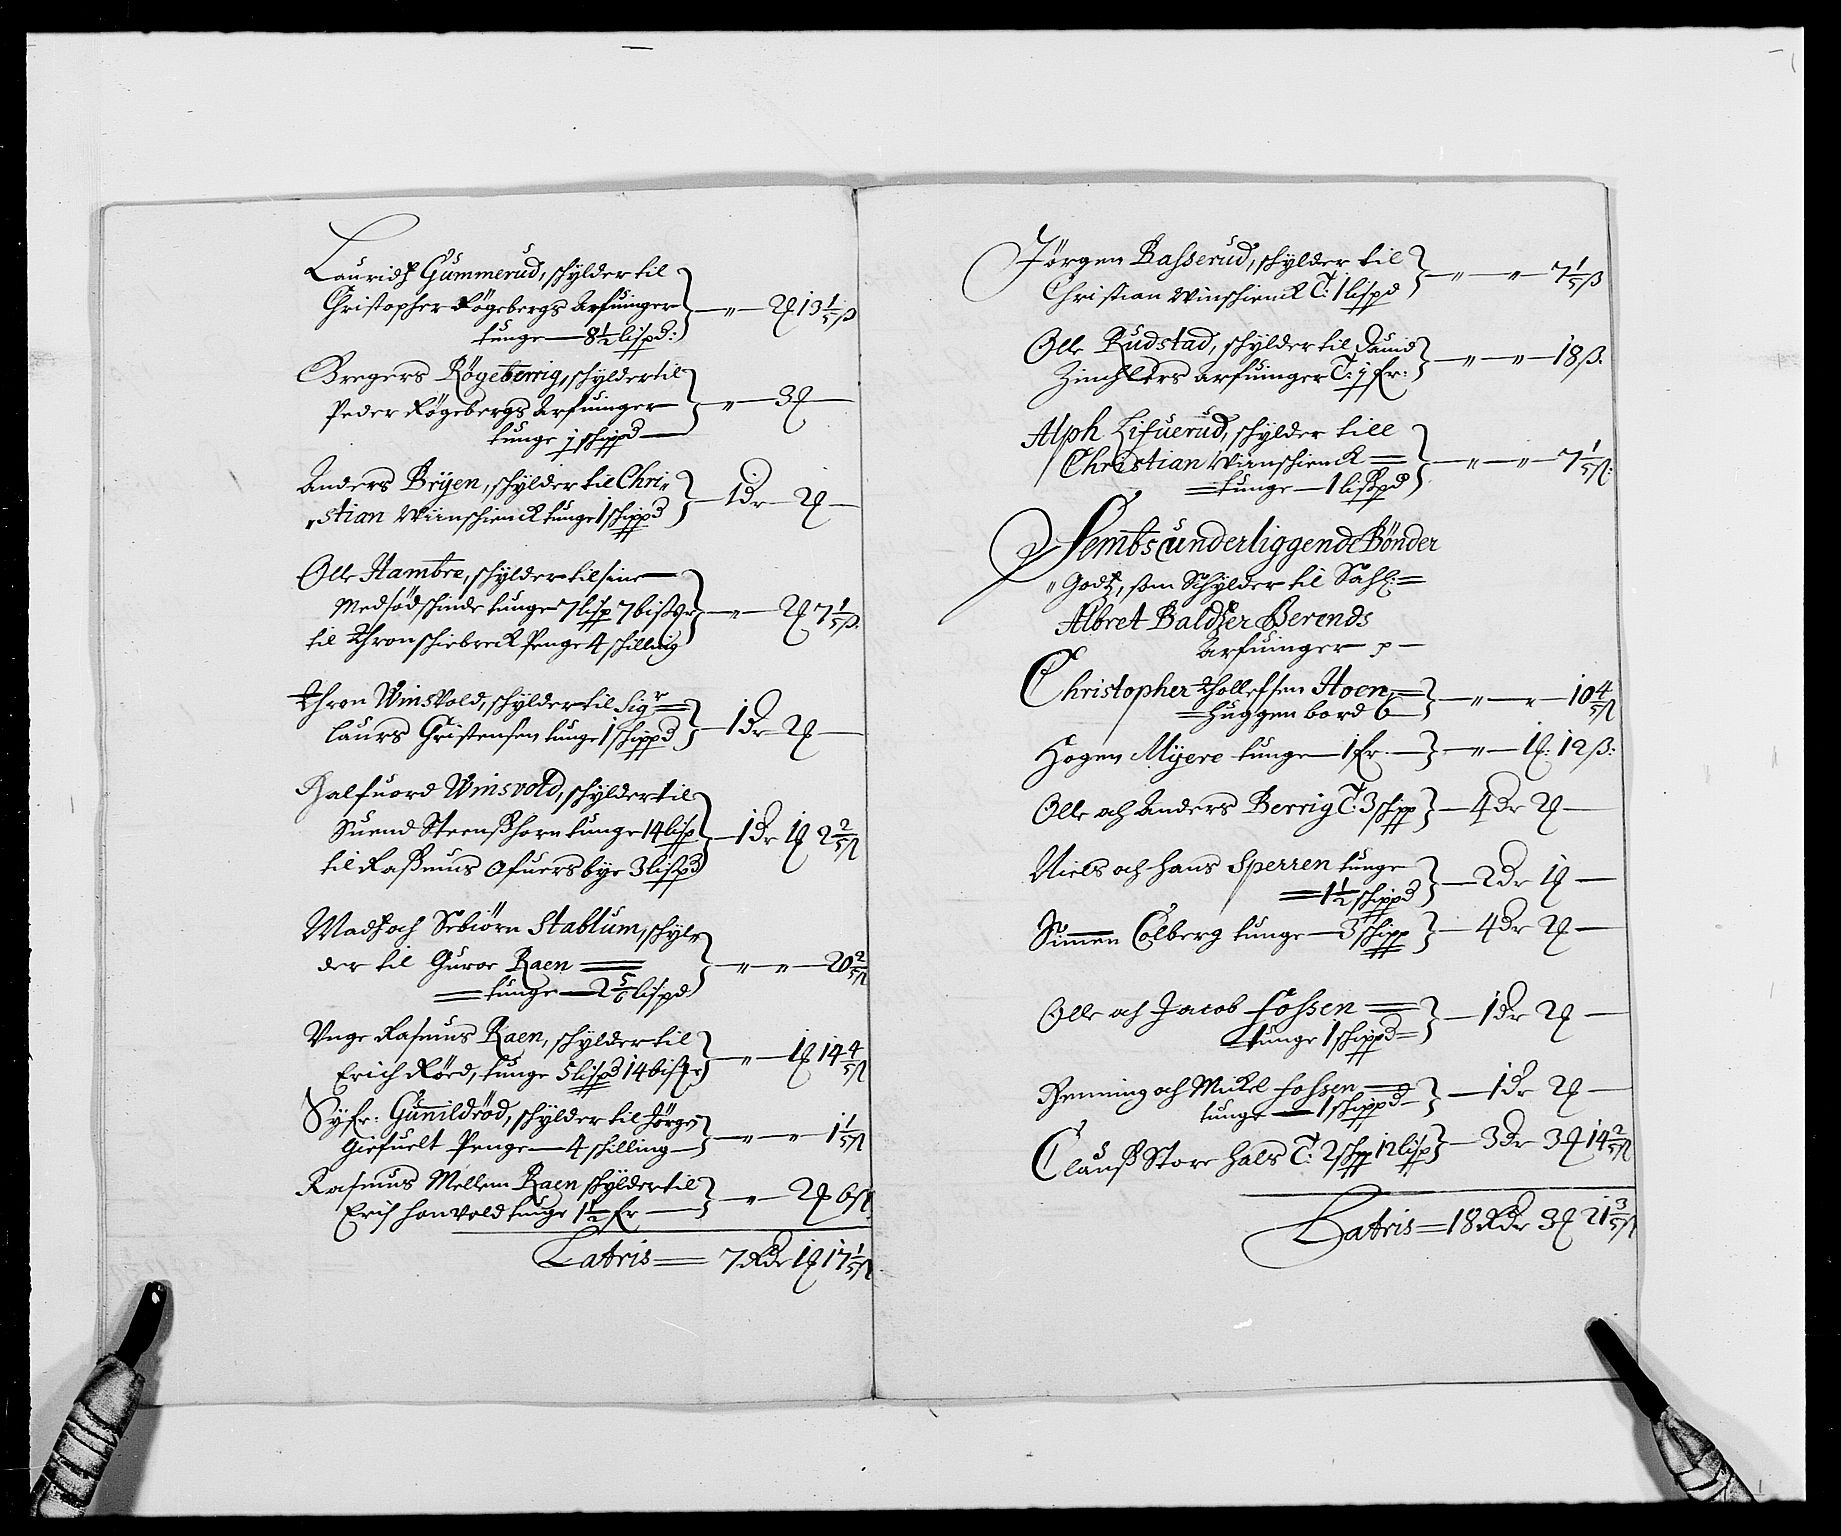 Lauridz Gummerud, schylder til
Christopher Røgebergs Arfuinger
tunge — 8 1/2 lispd: } — „ — 2 ℳ 13 1/5 ß
Gregers Røgeberrig, schylder til
Peder Røgebergs Arfuinger
tunge j schippd — } — „ — 3 ℳ —
Anders Bryen, schylder til Chri„
„stian Wiinschienck tunge 1 schippd } — 1 Dr 2 ℳ —
Olle Hambre, schylder til sine
Medsødschinde tunge 7 lisp 7 bismr
til Thron schiebreck Penge 4 schilling } — „ — 2 ℳ 7 1/5 ß.
Thron Winsvold, schylder til Sigr =
Laurs Christensen tunge 1 schippd } — 1 Dr 2 ℳ —
Halfuord Winsvold, schylder til
Suend Steenßhorn tunge 14 lisp
til Raßmus Ofuersbye 3 lispd } — 1 Dr 1 ℳ 2 2/5 ß
Madz och Sebiørn Stablum, schyl„
der til Guroe Raen =
= tunge — 2 5/6 lispd } — „ — „ — 20 2/5 ß
Unge Rasmus Raen, schylder til
Erich Røed, tunge 5 lispd 14 bismr } — „ — 1 ℳ 14 4/5 ß
Syfr: Gunnildrød, schylder til Jørgen
Giefuelt Penge — 4 schilling — } — „ — „ — 1 1/5 ß
Rasmus Mellem Raen schylder til
Erich Hanvold tunge 1 1/2 fr — } — „ — 2 ℳ 6 ß
Latris = 7 Rdr 1 ℳ 17 1/5 ß
Jørgen Basserud, schylder til
Christian Winschienck T: 1 lispd } — „ — „ — 7 1/5 ß
Olle Rudstad, schylder til Dauid
Zinchlers arfuinger T: j fr: } — „ — „ — 18 ß.
Alph Lifuerud, schylder till
Christian Winschienck =
= tunge — 1 lißpd } — „ — „ — 7 1/5 ß:
Sembs underliggende Bønder
„ Godtz, som Schylder til Sahl: =
Albret Baldtzer Berends
Arfuinger
Christopher Thollefsen Hoen, =
= Huggen bord 6 — } — „ — „ — 10 4/5 ß
Hogen Myere tunge — 1 fr. — } — „ — 1 ℳ: 12 ß:
Olle och Anders Berrig T: 3 schpp } — 4 Dr 2 ℳ —
Niels och Hans Sperren tunge
= 1 1/2 schippd } — 2 Dr 1 ℳ —
Simen Colberg tunge — 3 schipp } — 4 Dr 2 ℳ —
Olle och Jacob Fossen =
= tunge 1 schippd = } — 1 Dr 2 ℳ —
Henning och Mickel Fossen =
tunge — 1 schippd — } — 1 Dr 2 ℳ —
Clauß Store Hals T: 2 schpp 12 lisp } — 3 Dr 3 ℳ 14 2/5 ß
Latris = 18 Rdr 3 ℳ 21 3/5 ß